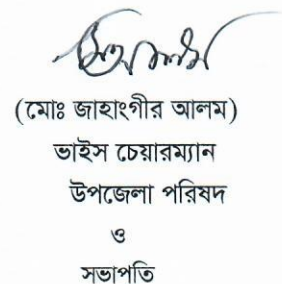 (মোঃ জাহাংগীর আলম)
ভাইস চেয়ারম্যান
উপজেলা পরিষদ
ও
সভাপতি